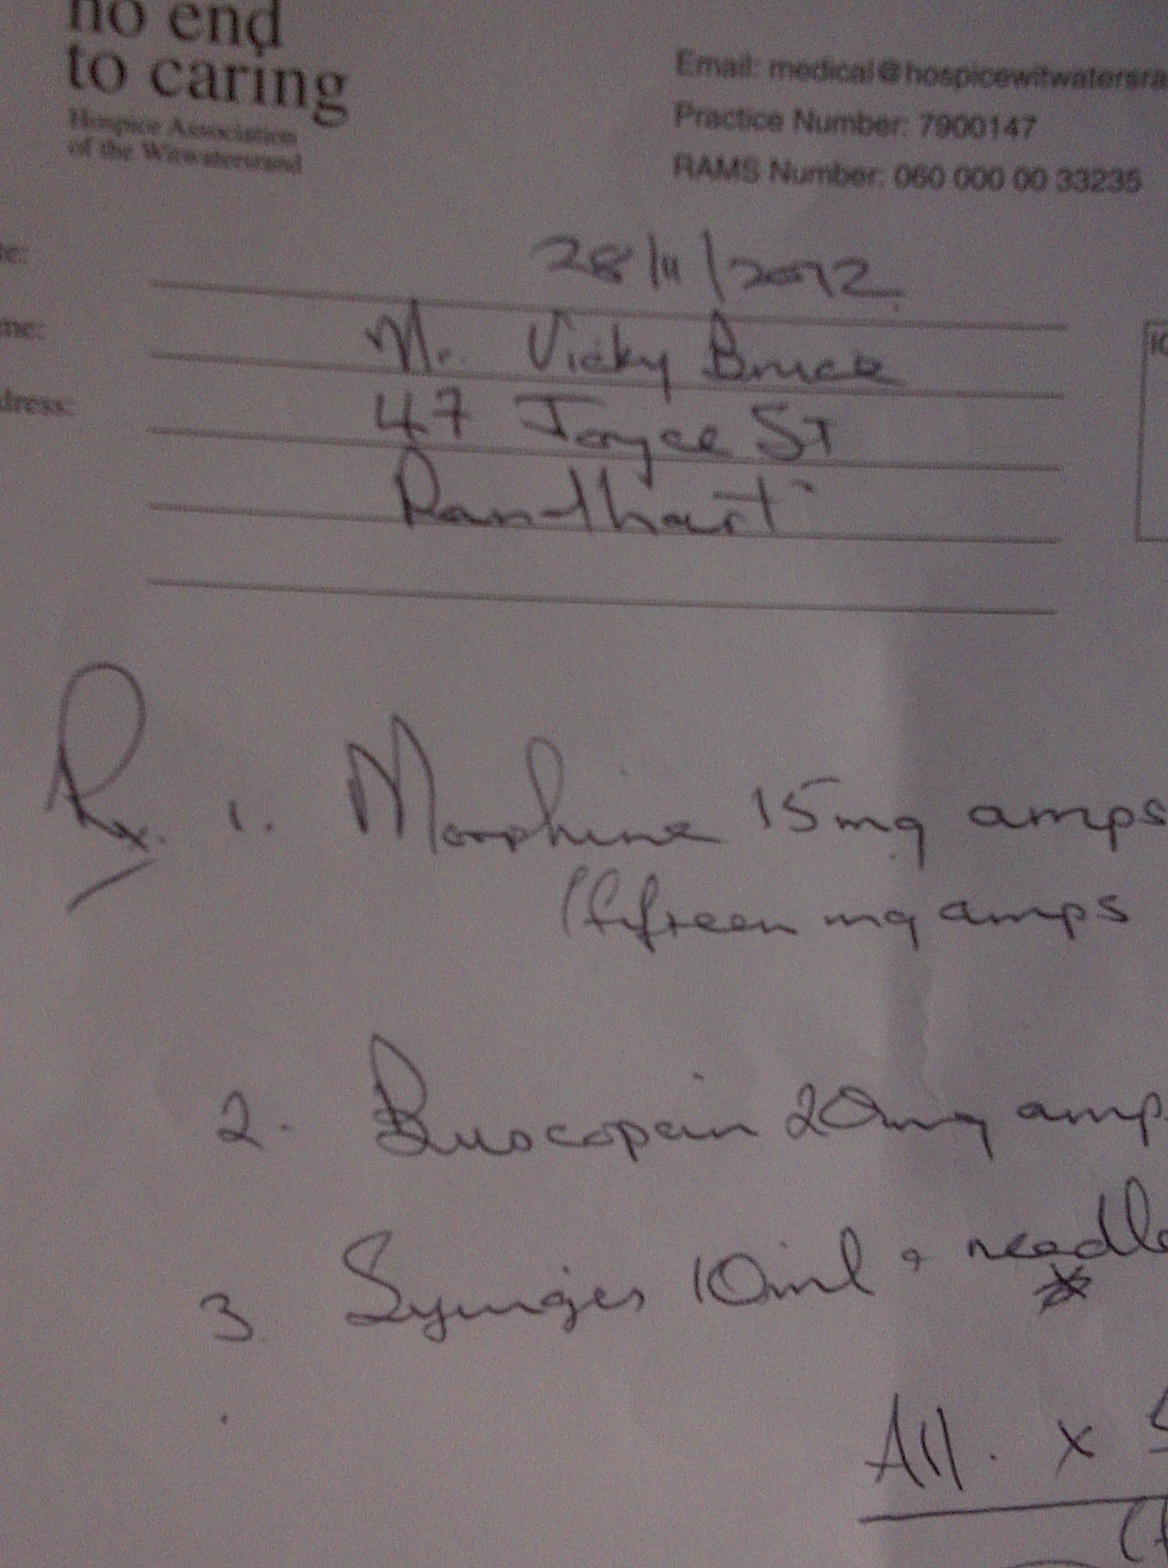 no end
to caring
Hospice Association
of the Witwatersrand
Email: medical@hospicewitwatersra
Practice Number: 7900147
RAMS Number: 060 000 00 33235
28/11/2012
me:
dress:
M. Vicky Bruce
47 Joyce St
Randhart
Rx. 1. Morphine 15mg amps
(fifteen mg amps
2. Buscopan 20mg amp
3 Syringes 10ml + needle
All. x